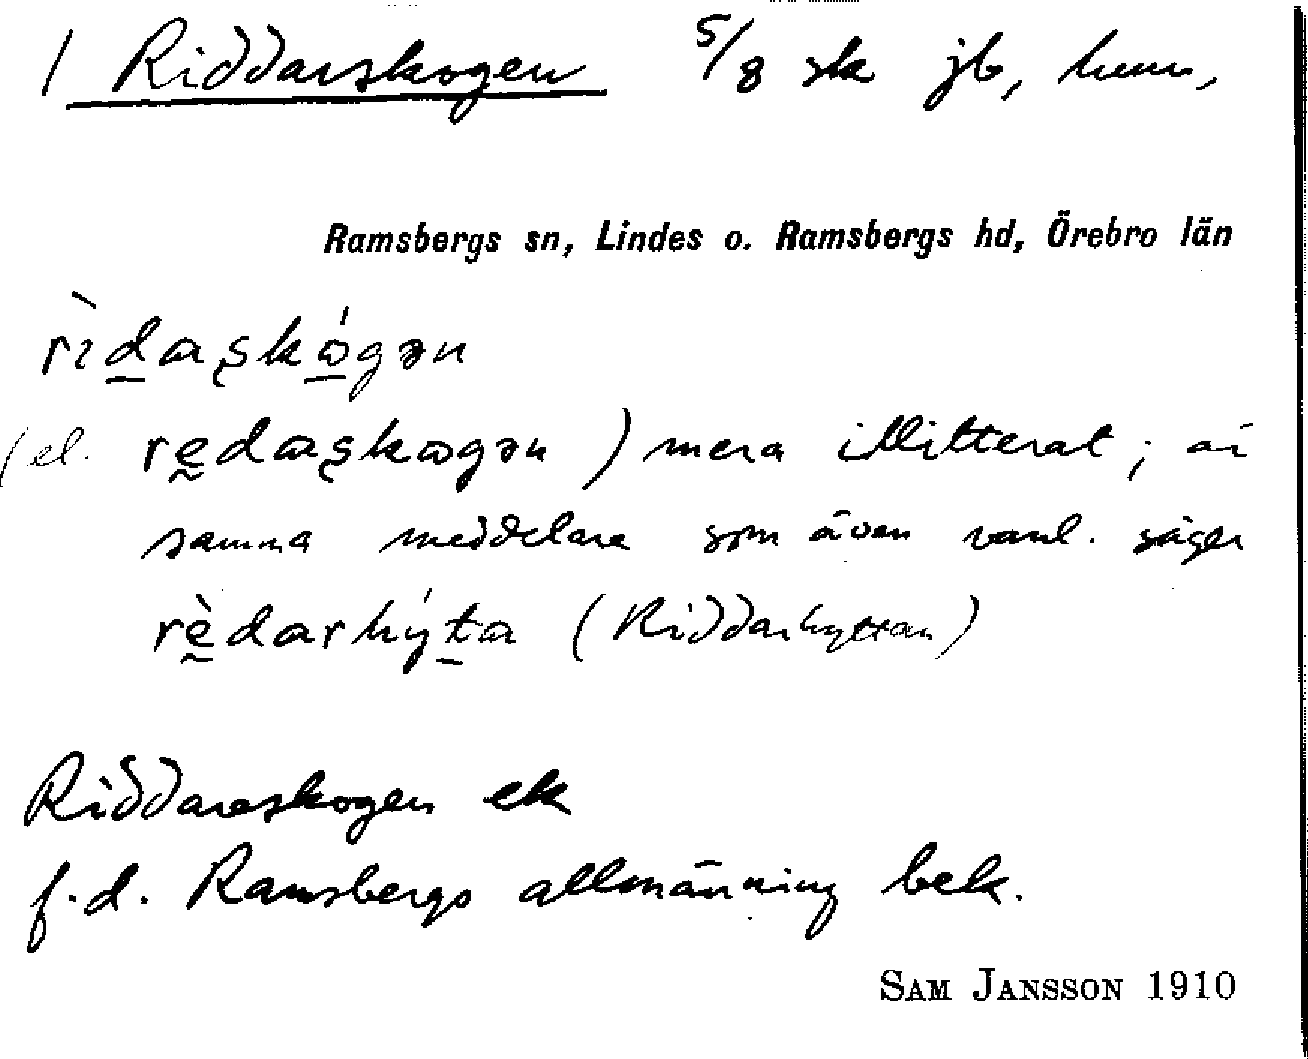 1 Riddarskogen 5/8 sk jb, hem,
Ramsbergs sn, Lindes o. Ramsbergs hd, Örebro län
rìdaskógən
(el. redaskogən) mera illitterat; av
samma meddelare som även vanl. säger
rèdarhýta (Riddarhyttan)
Riddareskogen ek
f.d. Ramsbergs allmänning bek.
SAM JANSSON 1910